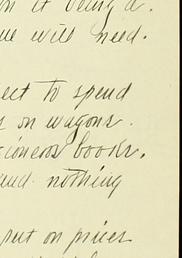 it being a
we will need.
ect to spend
s on wagons.
tioneers books.
and nothing
put on prices